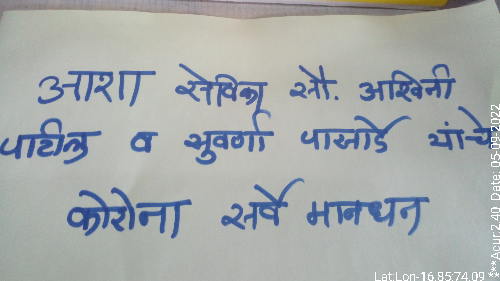 आशा सेविका सौ. अश्विनी
पाटील व सुवर्णा पासार्डे यांचे
कोरोना सर्वे मानधन
Lat:Lon-16.85:74.09
***Acur:2.40 Date: 05-09-2022